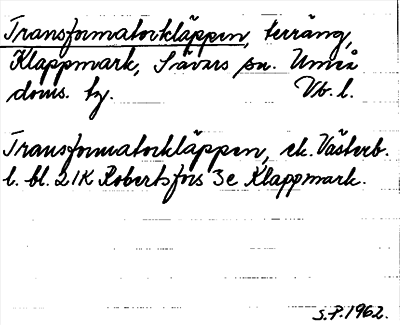 Transformatorkläppen, terräng,
Klappmark, Sävars sn. Umeå
doms. tg. Vb. l.
Transformatorkläppen, ek. Västerb.
l. bl. 21K Robertsfors 3e Klappmark.
S.P. 1962.